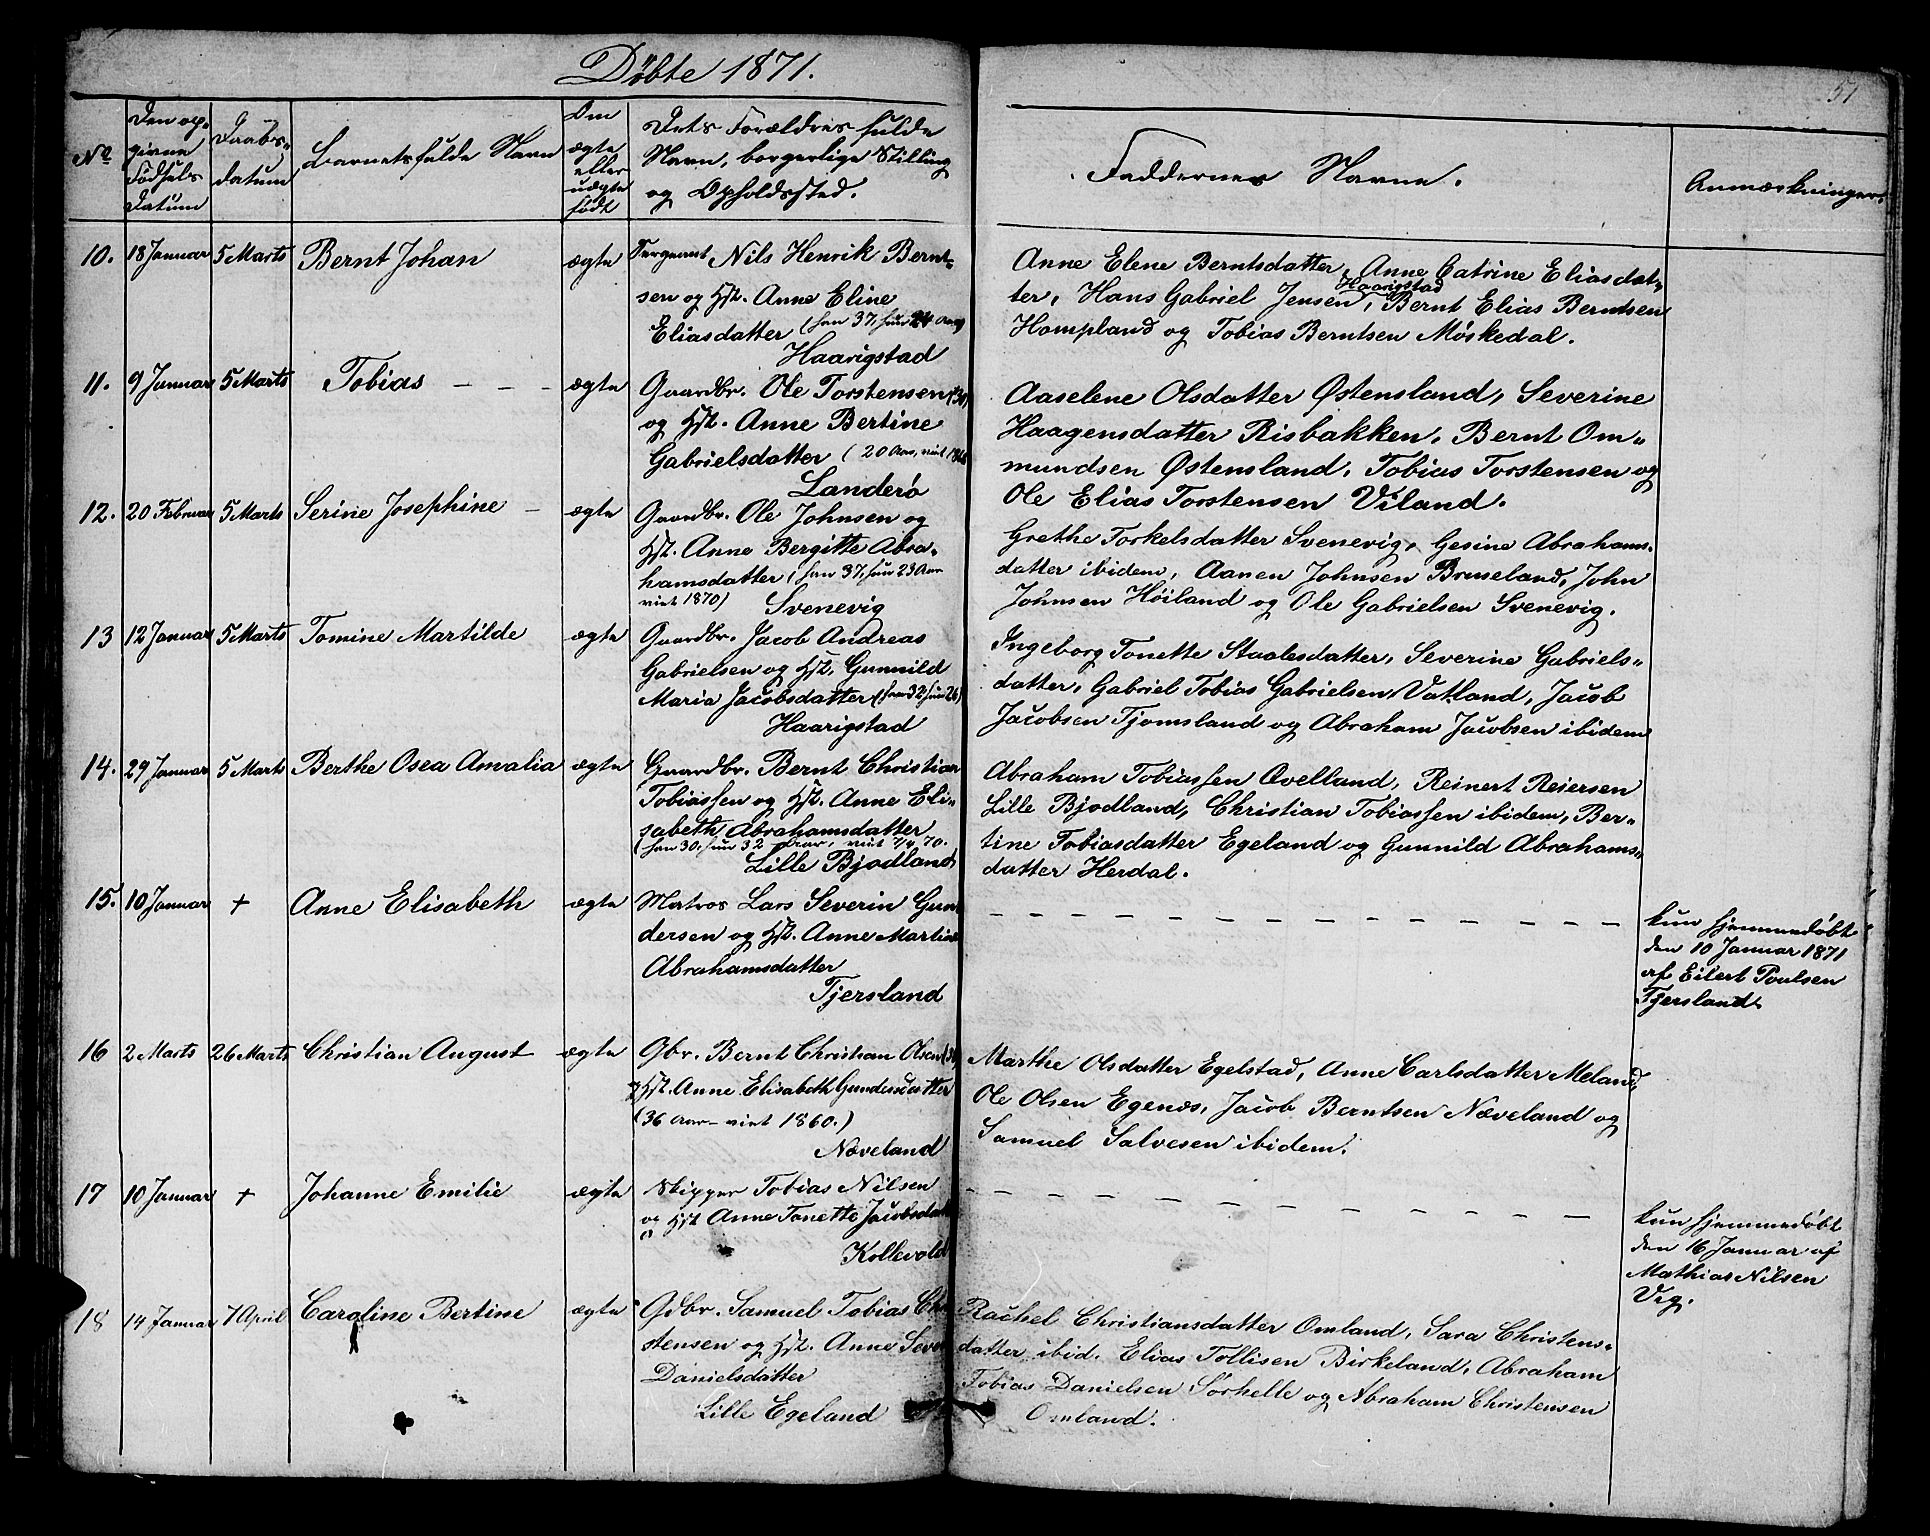 Döbte 1871.
57
No
Den op-
givne
Födsels
Datum
Daabs-
datum
Barnets fulde Navn
Om
ægte
eller
uægte
født
Dets Forældres fulde
Navn, borgerlige Stilling
og Opholdssted.
Faddernes Navne.
Anmærkninger.
10. 18 Januar 5 Marts Bernt Johan ægte Sergeant Nils Henrik Bernt-
sen og Hst. Anne Eline
Eliasdatter (han 37, hun 24 Aar)
Haarigstad
Anne Elene Berntsdatter, Anne Catrine Eliasdat-
ter, Hans Gabriel Jensen Haarigstad, Bernt Elias Berntsen
Hompland og Tobias Berntsen Møskedal.
11. 9 Januar 5 Marts Tobias — — — ægte Gaardbr. Ole Torstensen (30)
og Hst. Anne Bertine
Gabrielsdatter (20 Aar, viet
Landerø
Aaselene Olsdatter Østensland, Severine
Haagensdatter Risbakken, Bernt Om-
mundsen Østensland, Tobias Torstensen og
Ole Elias Torstensen Viland.
12. 20 Februar 5 Marts Serine Josephine — ægte Gaardbr. Ole Johnsen og
Hst. Anne Bergitte Abra-
hamsdatter (han 37, hun 23 Aar
viet 1870) Svenevig
Grethe Torkelsdatter Svenevig, Gesine Abrahams-
datter ibidem, Aanen Johnsen Bruseland, John
Johnsen Høiland og Ole Gabrielsen Svenevig.
13 12 Januar 5 Marts Tomine Martilde ægte Gaardbr. Jacob Andreas
Gabrielsen og Hst. Gunnild
Maria Jacobsdatter (han 32, hun 26)
Haarigstad
Ingeborg Tonette Staalesdatter, Severine Gabriels-
datter, Gabriel Tobias Gabrielsen Vatland, Jacob
Jacobsen Tjomsland og Abraham Jacobsen ibidem
14. 29 Januar 5 Marts Berthe Osea Amalia ægte Gaardbr. Bernt Christian
Tobiassen og Hst. Anne Eli-
sabeth Abrahamsdatter
(han 30, hun 32 Aar, viet 7/4 70.
Lille Bjodland
Abraham Tobiassen Qvelland, Reinert Reiersen
Lille Bjodland, Christian Tobiassen ibidem, Ber-
tine Tobiasdatter Egeland og Gunnild Abrahams-
datter Herdal.
15. 10 Januar + Anne Elisabeth ægte Matros Lars Severin Gun-
dersen og Hst. Anne Martine
Abrahamsdatter
Tjersland
kun hjemmedøbt
den 10 Januar 1871
af Eilert Poulsen
Tjersland.
16 2 Marts 26 Marts Christian August ægte Gbr. Bernt Christian Olsen
og Hst. Anne Elisabeth Gundersdatter
(36 Aar – viet 1860.)
Næveland
Marthe Olsdatter Egelstad, Anne Carlsdatter Meland,
Ole Olsen Egenæs, Jacob Berntsen Næveland og
Samuel Salvesen ibidem.
17 10 Januar + Johanne Emilie ægte Skipper Tobias Nilsen
og Hst Anne Tonette Jacobsdatter
Kollevold
kun hjemmedøbt
den 16 Januar af
Mathias Nilsen
Vig.
18 14 Januar 7 April Caroline Bertine ægte Gdbr. Samuel Tobias Chri
stensen og Hst. Anne
Danielsdatter
Lille Egeland
Rachel Christiansdatter Omland, Sara Christens-
datter ibid. Elias Tollisen Birkeland, Abraham
Tobias Danielsen Sørhelle og Abraham Christensen
Omland.